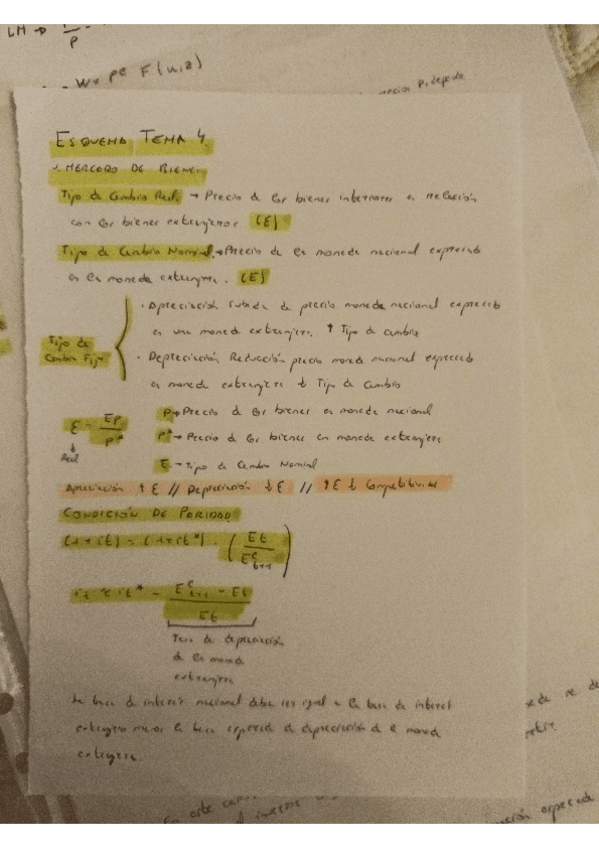 LM →
P
W = Pe F(u,z)
ESQUEMA TEMA 4
1. MERCADO DE BIENES
Tipo de Cambio Real → Precio de los bienes interiores en relación
con los bienes extranjeros (ε)
Tipo de Cambio Nominal → Precio de la moneda nacional expresado
en la moneda extranjera. (E)
Tipo de
Cambio Fijo
· Apreciación subida de precio moneda nacional expresado
en una moneda extranjera. ↑ Tipo de cambio
· Depreciación Reducción precio moneda nacional expresado
en moneda extranjera ↓ Tipo de Cambio
ε = EP / P*
↓
Real
P → Precio de los bienes en moneda nacional
P* → Precio de los bienes en moneda extranjera
E → Tipo de Cambio Nominal
Apreciación ↑ E // Depreciación ↓ E // ↑ E ↓ Competitividad
CONDICIÓN DE PARIDAD
(1+it) = (1+it*) · (Et / E^e t+1)
it ≈ it* - (E^e t+1 - Et) / Et
Tasa de depreciación
de la moneda
extranjera
La tasa de interés nacional debe ser igual a la tasa de interés
extranjera menos la tasa esperada de depreciación de la moneda
extranjera.
En este
el interes
esperada